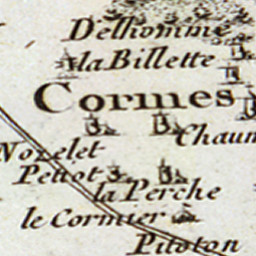 Delhomme
la Billette
Cormes
Chaum
Nozelet
Pettot
la Perche
le Cormier
Pitoton